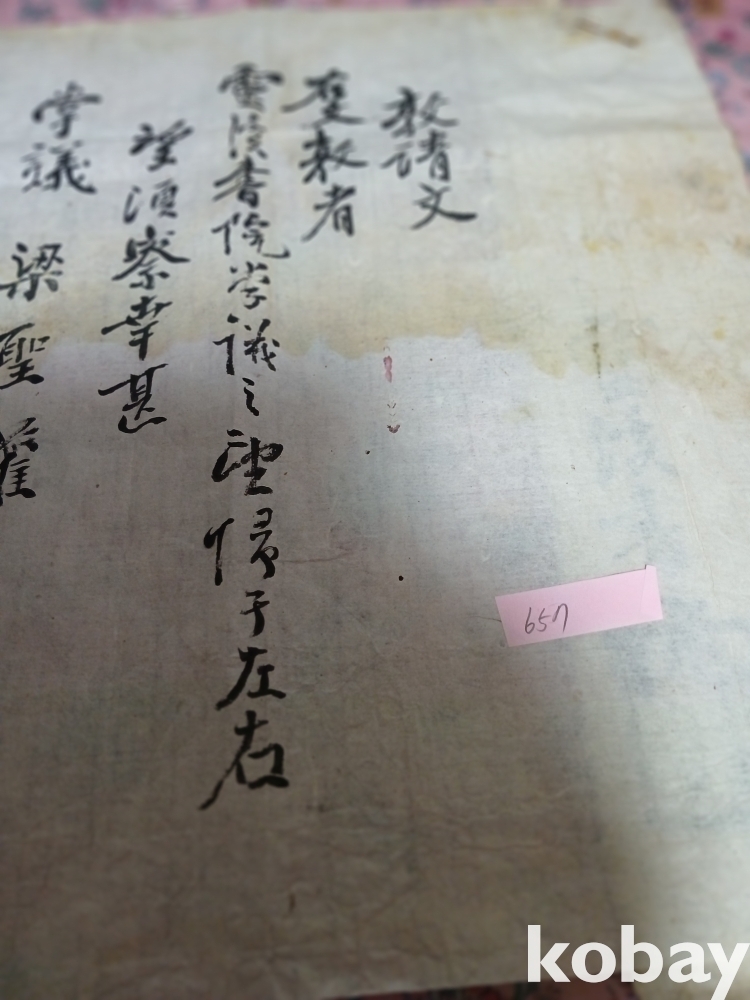 敦請文
右敦者
雲溪書院学議之望归于左右
望須察幸甚
学議 梁聖
657
kobay